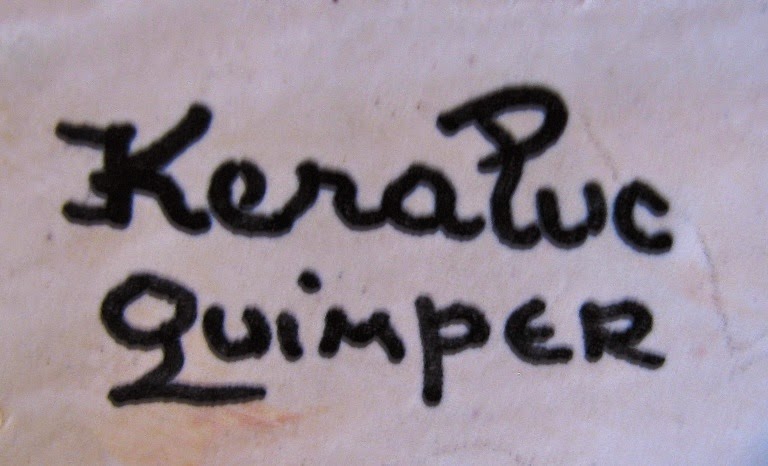 Keraluc
Quimper